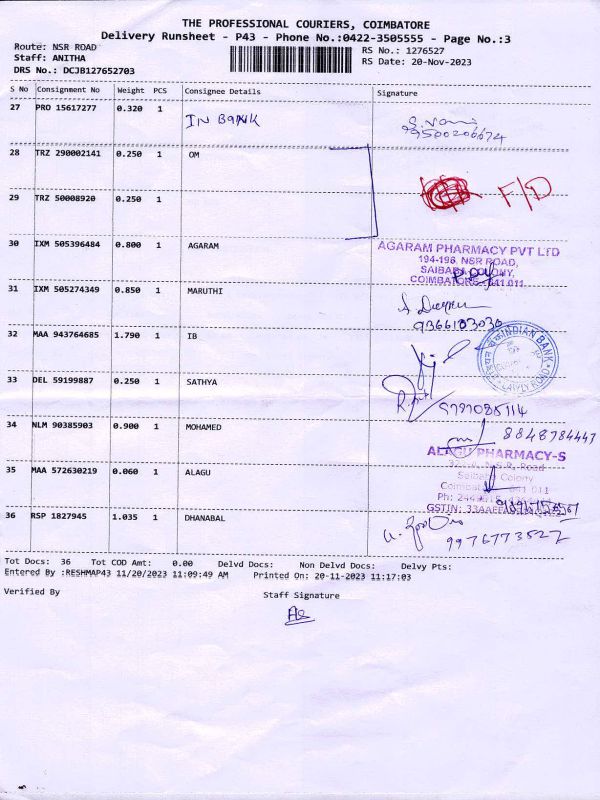 THE PROFESSIONAL COURIERS, COIMBATORE
Delivery Runsheet - P43 - Phone No.:0422-3505555 - Page No.:3
Route: NSR ROAD
RS No.: 1276527
Staff: ANITHA
RS Date: 20-Nov-2023
DRS No.: DCJB127652703
S No Consignment No Weight PCS Consignee Details Signature
27 PRO 15617277 0.320 1 IN BANK
9500206674
28 TRZ 290002141 0.250 1 OM
29 TRZ 50008920 0.250 1 F/D
30 IXM 505396484 0.800 1 AGARAM
AGARAM PHARMACY PVT LTD
194-196, NSR ROAD,
SAIBABA COLONY,
COIMBATORE - 641 011
31 IXM 505274349 0.850 1 MARUTHI
9366103030
32 MAA 943764685 1.790 1 IB
INDIAN BANK
LAWLY ROAD
33 DEL 59199887 0.250 1 SATHYA
9791085114
34 NLM 90385903 0.900 1 MOHAMED
8848784447
35 MAA 572630219 0.060 1 ALAGU
ALAGU PHARMACY-S
N.S.R. Road
Saibaba Colony
641 011
36 RSP 1827945 1.035 1 DHANABAL
9976773527
Tot Docs: 36 Tot COD Amt: 0.00 Delvd Docs: Non Delvd Docs: Delvy Pts:
Entered By :RESHMAP43 11/20/2023 11:09:49 AM Printed On: 20-11-2023 11:17:03
Verified By Staff Signature